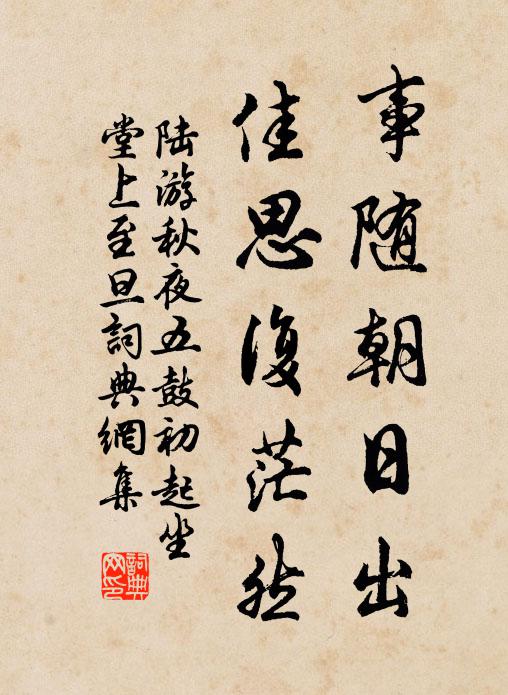 事随朝日出
佳思復茫然
陆游秋夜五鼓初起坐
堂上至旦詞典網集
詞典网印